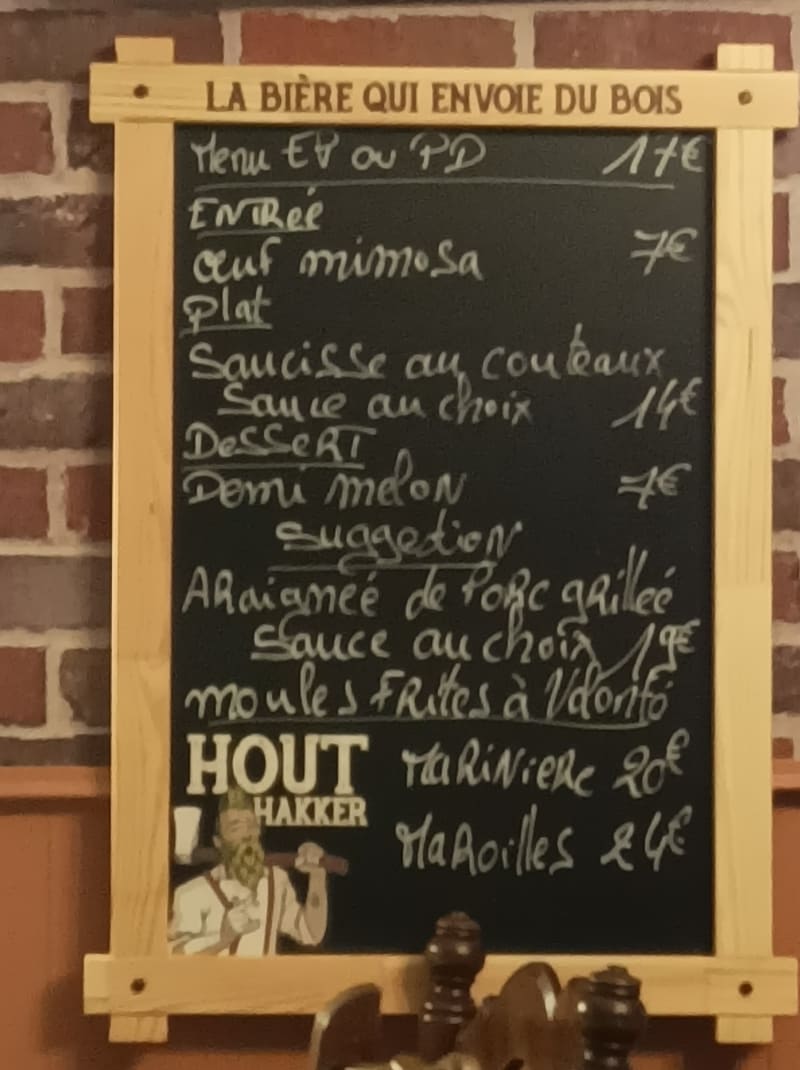 LA BIÈRE QUI ENVOIE DU BOIS
Menu EP ou PD 17€
ENTRéé
œuf mimosa 7€
Plat
Saucisse au couteaux
Sauce au choix 14€
DeSSeRT
Demi meloN 7€
SuggestioN
ARaignéé de PoRc gRilléé
Sauce au choix 19€
moules FRites à Volonté
HOUT
HAKKER
MaRiNieRe 20€
MaRoilles 24€